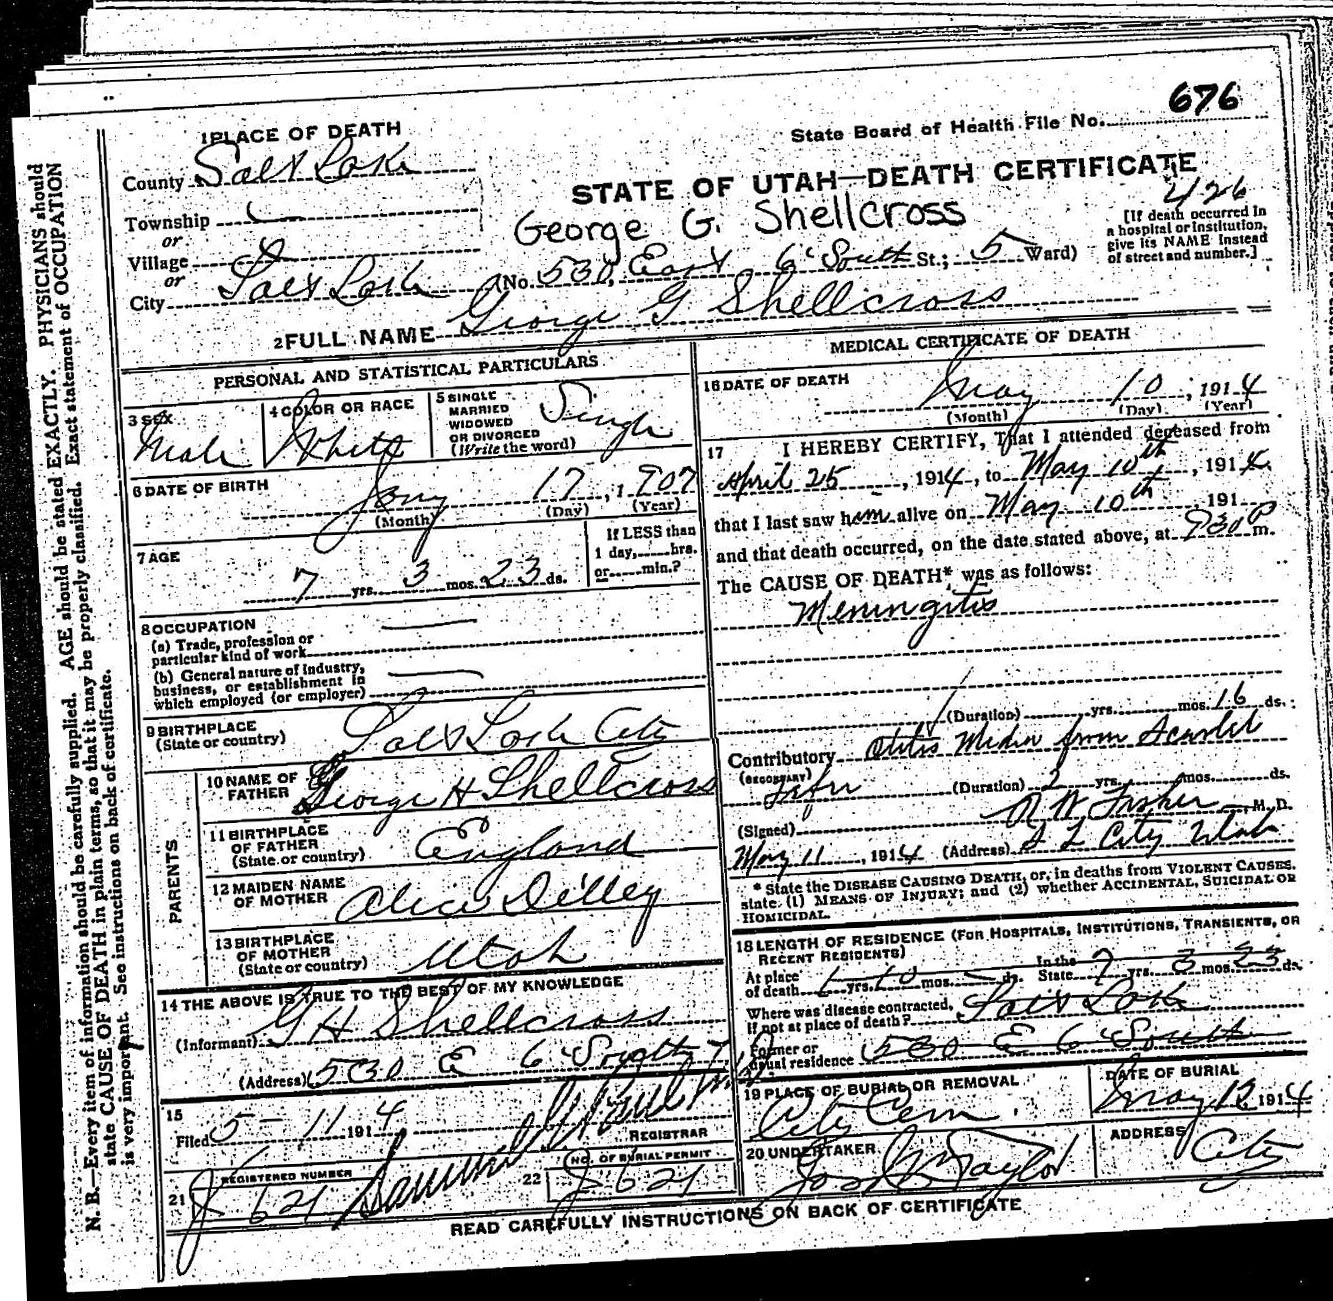 676
State Board of Health File No.
1 PLACE OF DEATH
County Salt Lake
STATE OF UTAH—DEATH CERTIFICATE
426
Township
George G. Shellcross
[If death occurred in
a hospital or institution,
give its NAME instead
of street and number.]
or
Village
or
City Salt Lake (No. 530, East 6" South St.; 5 Ward)
2 FULL NAME George G Shellcross
PERSONAL AND STATISTICAL PARTICULARS
3 SEX
Male
4 COLOR OR RACE
White
5 SINGLE
MARRIED
WIDOWED
OR DIVORCED
(Write the word)
Single
6 DATE OF BIRTH
Jany 17, 1907
(Month) (Day) (Year)
7 AGE
7 yrs. 3 mos. 23 ds.
If LESS than
1 day, hrs.
or min.?
8 OCCUPATION
(a) Trade, profession or
particular kind of work
(b) General nature of industry,
business, or establishment in
which employed (or employer)
9 BIRTHPLACE
(State or country) Salt Lake City
PARENTS
10 NAME OF
FATHER George H Shellcross
11 BIRTHPLACE
OF FATHER
(State or country) England
12 MAIDEN NAME
OF MOTHER Alice Dilley
13 BIRTHPLACE
OF MOTHER
(State or country) Utah
14 THE ABOVE IS TRUE TO THE BEST OF MY KNOWLEDGE
(Informant) G H Shellcross
(Address) 530 E 6" South
15
Filed 5-11 1914
Samuel G Paul
REGISTRAR
21 REGISTERED NUMBER
J 621
22 NO. OF BURIAL PERMIT
J 621
MEDICAL CERTIFICATE OF DEATH
16 DATE OF DEATH
May 10, 1914
(Month) (Day) (Year)
17 I HEREBY CERTIFY, That I attended deceased from
April 25, 1914, to May 10th, 1914
that I last saw him alive on May 10th 191
and that death occurred, on the date stated above, at 930 P m.
The CAUSE OF DEATH* was as follows:
Meningitis
(Duration) yrs. mos. 16 ds.
Contributory Otitis Media from Scarlet
(SECONDARY) Fever (Duration) 2 yrs. mos. ds.
(Signed) R W Fisher, M. D.
May 11, 1914 (Address) S L City Utah
* State the DISEASE CAUSING DEATH, or, in deaths from VIOLENT CAUSES,
state (1) MEANS OF INJURY; and (2) whether ACCIDENTAL, SUICIDAL OR
HOMICIDAL.
18 LENGTH OF RESIDENCE (FOR HOSPITALS, INSTITUTIONS, TRANSIENTS, OR
RECENT RESIDENTS)
At place of death 1 yrs. 10 mos. - ds. In the State 7 yrs. 3 mos. 23 ds.
Where was disease contracted,
if not at place of death? Salt Lake
Former or
usual residence 530 E 6" South
19 PLACE OF BURIAL OR REMOVAL
City Cem.
DATE OF BURIAL
May 12 1914
20 UNDERTAKER
Jos Wm Taylor
ADDRESS
City
READ CAREFULLY INSTRUCTIONS ON BACK OF CERTIFICATE
N. B.—Every item of information should be carefully supplied. AGE should be stated EXACTLY. PHYSICIANS should
state CAUSE OF DEATH in plain terms, so that it may be properly classified. Exact statement of OCCUPATION
is very important. See instructions on back of certificate.